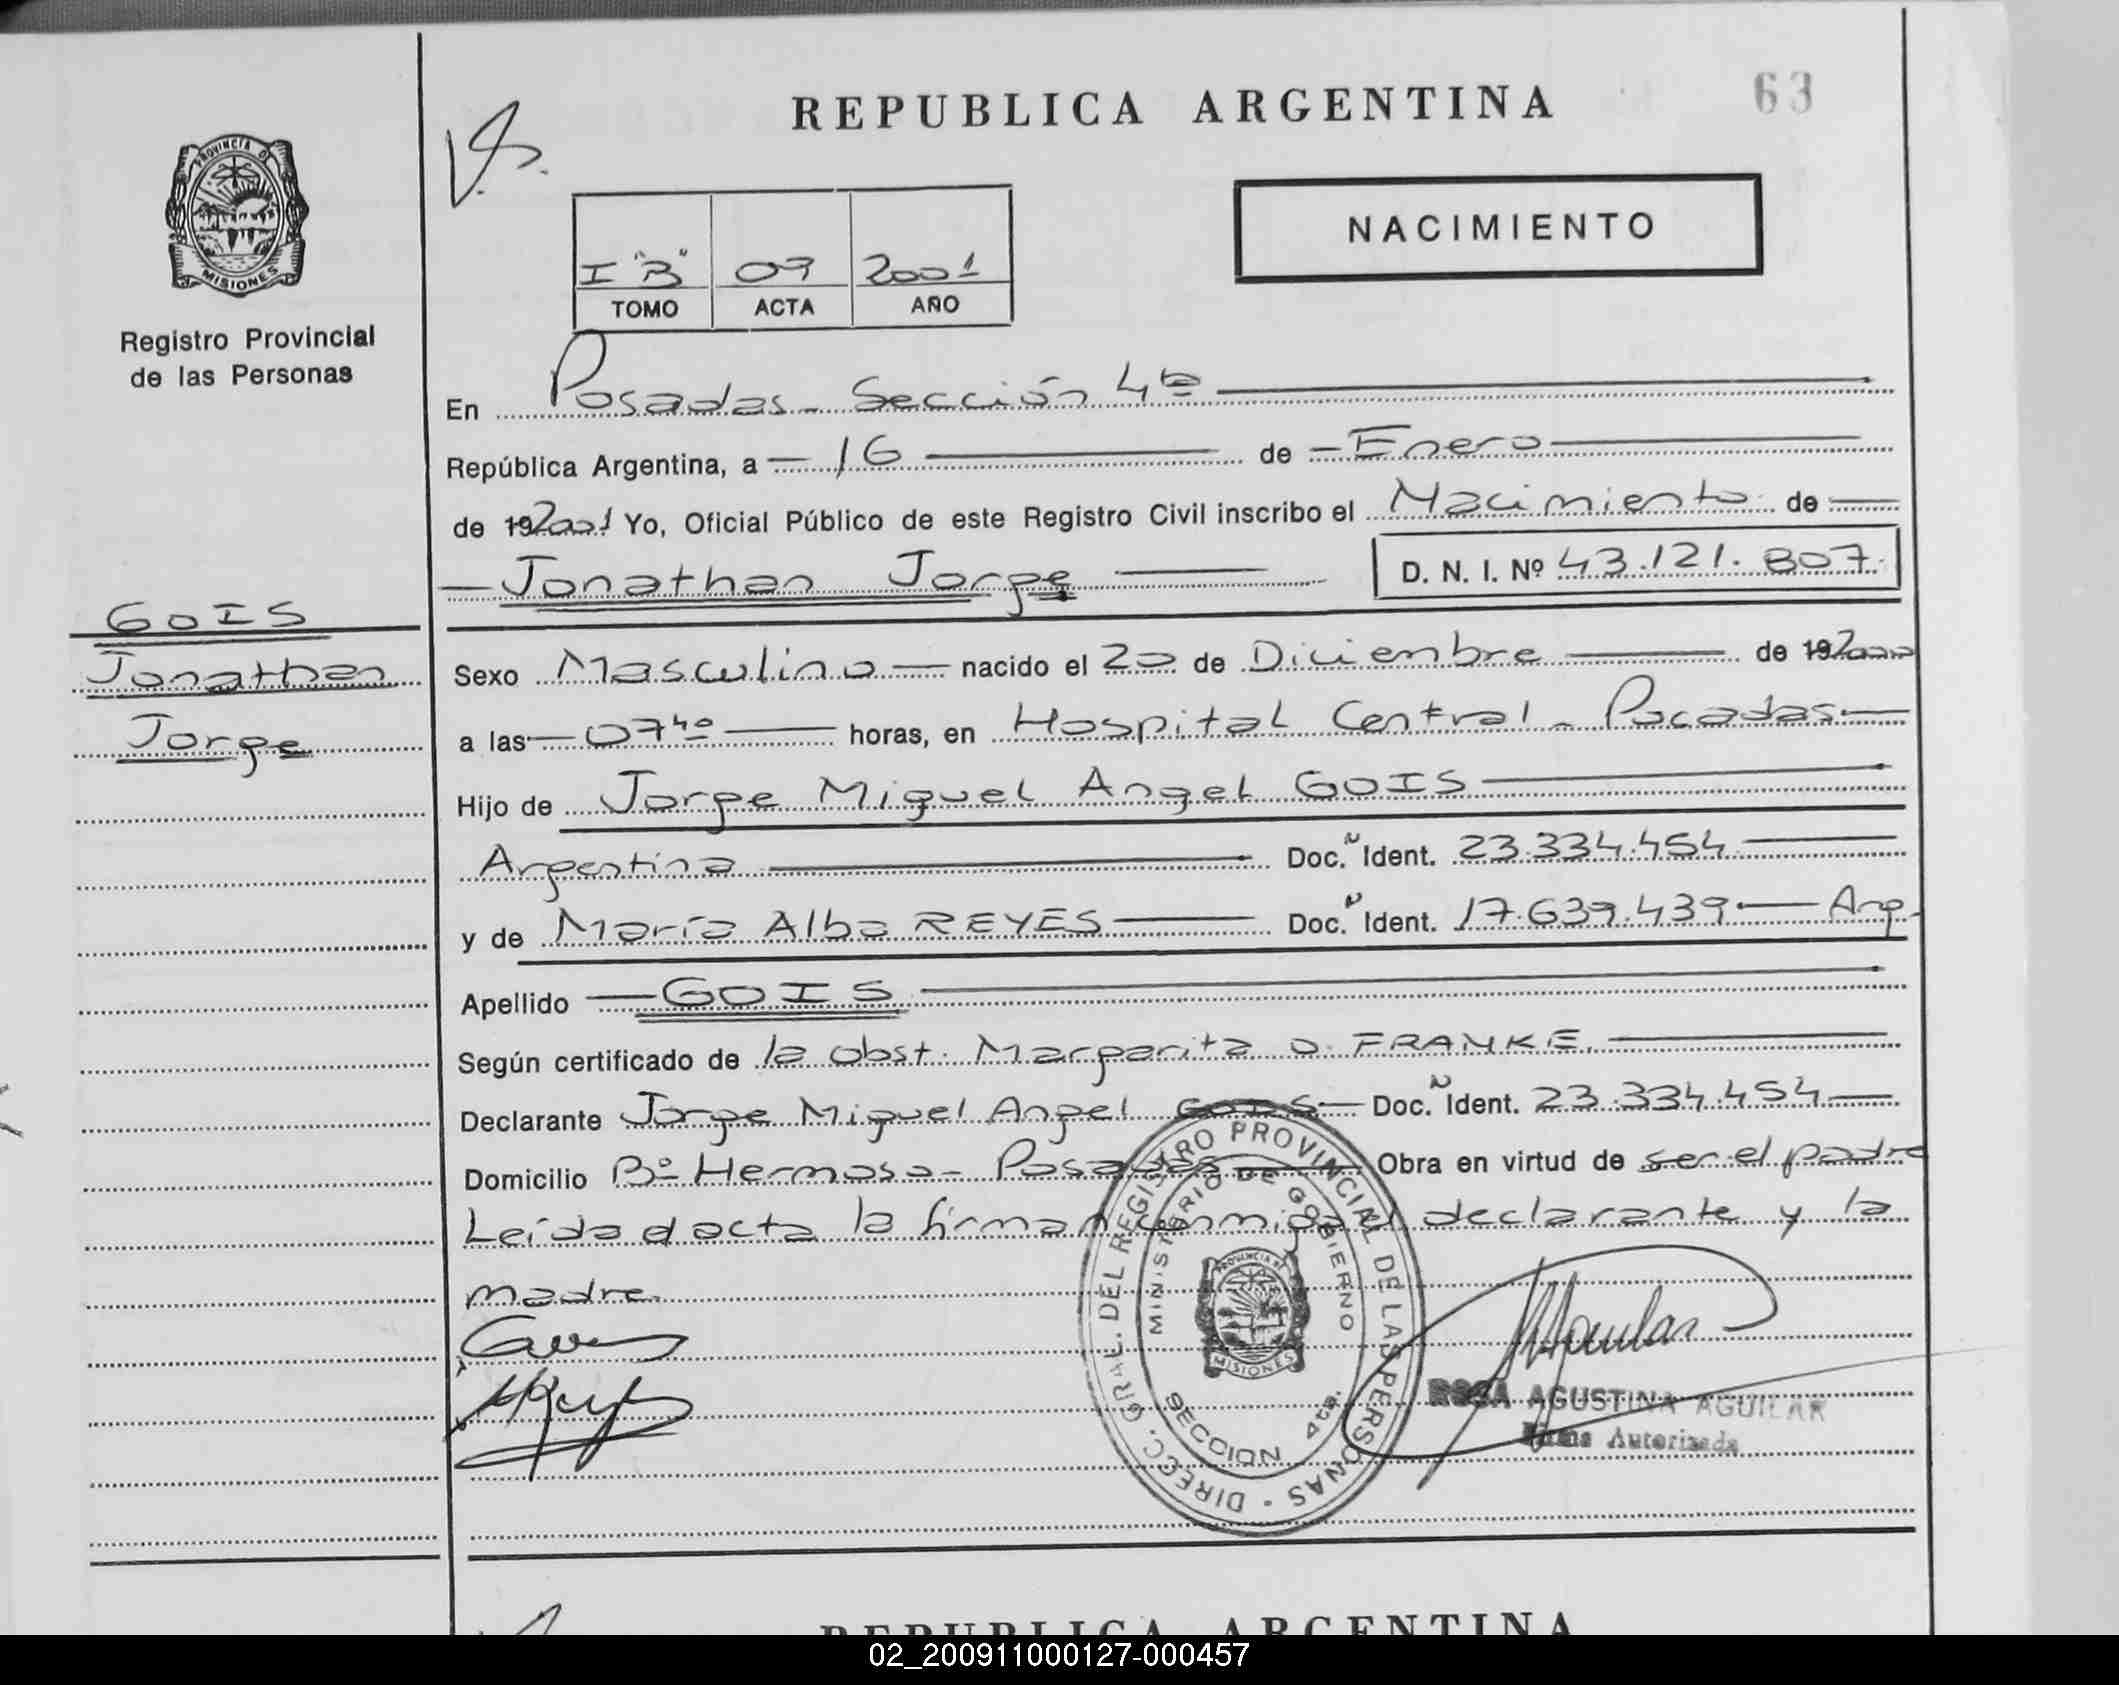 REPUBLICA ARGENTINA
63
PROVINCIA DE
MISIONES
Registro Provincial
de las Personas
NACIMIENTO
I "B" 09 2001
TOMO ACTA AÑO
En Posadas - Sección 4ta
República Argentina, a 16 de Enero
de 192001 Yo, Oficial Público de este Registro Civil inscribo el Nacimiento de
Jonathan Jorge D. N. I. Nº 43.121.807
GOIS
Jonathan
Jorge
Sexo Masculino nacido el 20 de Diciembre de 192000
a las 07 40 horas, en Hospital Central - Posadas
Hijo de Jorge Miguel Angel GOIS
Argentina Doc. N Ident. 23.334.454
y de María Alba REYES Doc. N Ident. 17.639.439 Arg.
Apellido GOIS
Según certificado de la obst. Margarita O. FRANKE.
Declarante Jorge Miguel Angel GOIS Doc. N Ident. 23.334.454
Domicilio Bº Hermoso - Posadas Obra en virtud de ser el padre
Leída el acta la firman conmigo el declarante y la
madre.
DIREC. GRAL. DEL REGISTRO PROVINCIAL DE LAS PERSONAS
MINISTERIO DE GOBIERNO
PROVINCIA DE
MISIONES
SECCION 4ta.
ROSA AGUSTINA AGUILAR
Firma Autorizada
REPUBLICA ARGENTINA
02_200911000127-000457